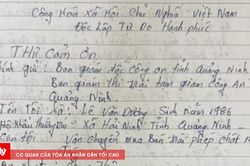 Cộng Hòa Xã Hội Chủ Nghĩa Việt Nam
Độc Lập Tự Do Hạnh phúc
Thư Cảm Ơn
Kính gửi: Ban giám đốc công an tỉnh Quảng Ninh
Ban giám thị Trại tạm giam Công An
Quảng Ninh
Tên Tôi Xã: Lê Văn Dương Sinh năm 1986
Hộ Khẩu Thường Trú: Xã Hải Ninh Tỉnh Quảng Ninh
Can tội: Vận chuyển mua Bán trái phép chất
CƠ QUAN CỦA TÒA ÁN NHÂN DÂN TỐI CAO